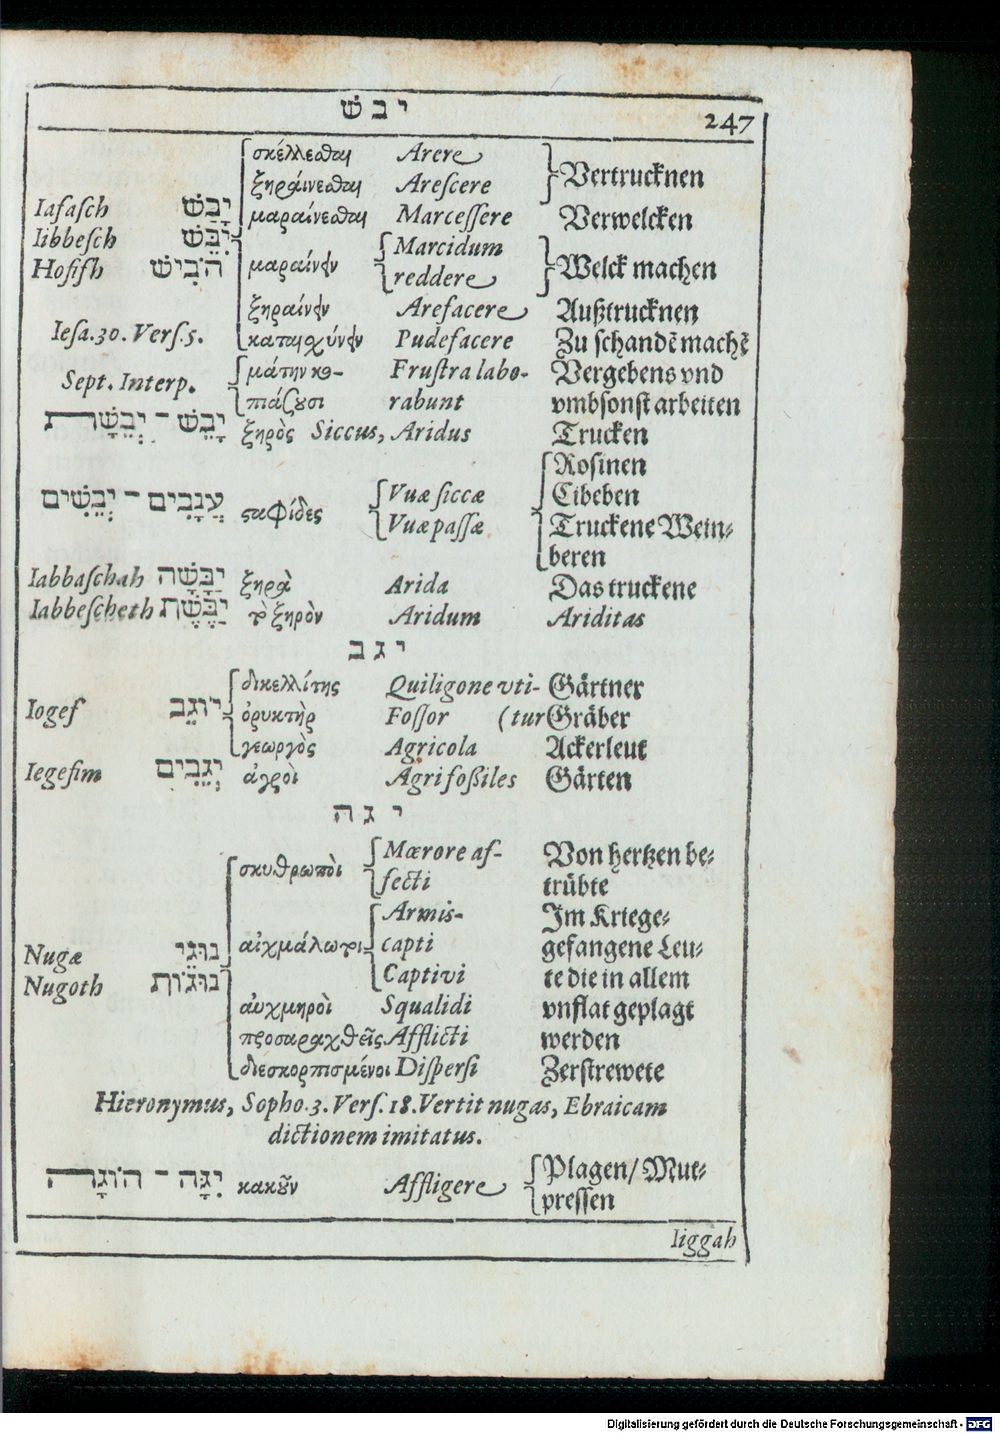 יבש 247
σκέλλεσθαι Arere Vertrucknen
ξηραίνεσθαι Arescere
Iafasch יָבַשׁ μαραίνεσθαι Marcessere Verwelcken
Iibbesch יִבֵּשׁ Marcidum
Hofifh הֹבִישׁ μαραίνειν reddere Welck machen
ξηραίνειν Arefacere Außtrucknen
Iesa.30. Vers.5. καταισχύνειν Pudefacere Zu schandẽ machẽ
Sept. Interp. μάτην κο- Frustra labo- Vergebens vnd
πιάζουσι rabunt vmbsonst arbeiten
יָבֵשׁ - יְבֵשָׁה ξηρὸς Siccus, Aridus Trucken
Rosinen
עֲנָבִים - יְבֵשִׁים ςαφίδες Vuæ siccæ Cibeben
Vuæ passæ Truckene Wein-
beren
Iabbaschah יַבָּשָׁה ξηρὰ Arida Das truckene
Iabbescheth יַבֶּשֶׁת τὸ ξηρὸν Aridum Ariditas
יגב
δικελλίτης Quiligone vti- Gärtner
Iogef יוֹגֵב ὀρυκτὴρ Fossor (tur Gräber
γεωργὸς Agricola Ackerleut
Iegefim יְגֵבִים ἀγροὶ Agri foßiles Gärten
יגה
σκυθρωποὶ Mærore af- Von hertzen be-
fecti trübte
Armis- Im Kriege-
Nugæ נוּגֵי αἰχμάλωτοι capti gefangene Leu-
Nugoth נוּגוֹת Captivi te die in allem
αὐχμηροὶ Squalidi vnflat geplagt
προσαραχθεῖς Afflicti werden
διεσκορπισμένοι Dispersi Zerstrewete
Hieronymus, Sopho.3. Vers.18. Vertit nugas, Ebraicam
dictionem imitatus.
יִגָּה - הוֹגָה κακοῦν Affligere Plagen/Mut-
pressen
Iiggah
Digitalisierung gefördert durch die Deutsche Forschungsgemeinschaft - DFG